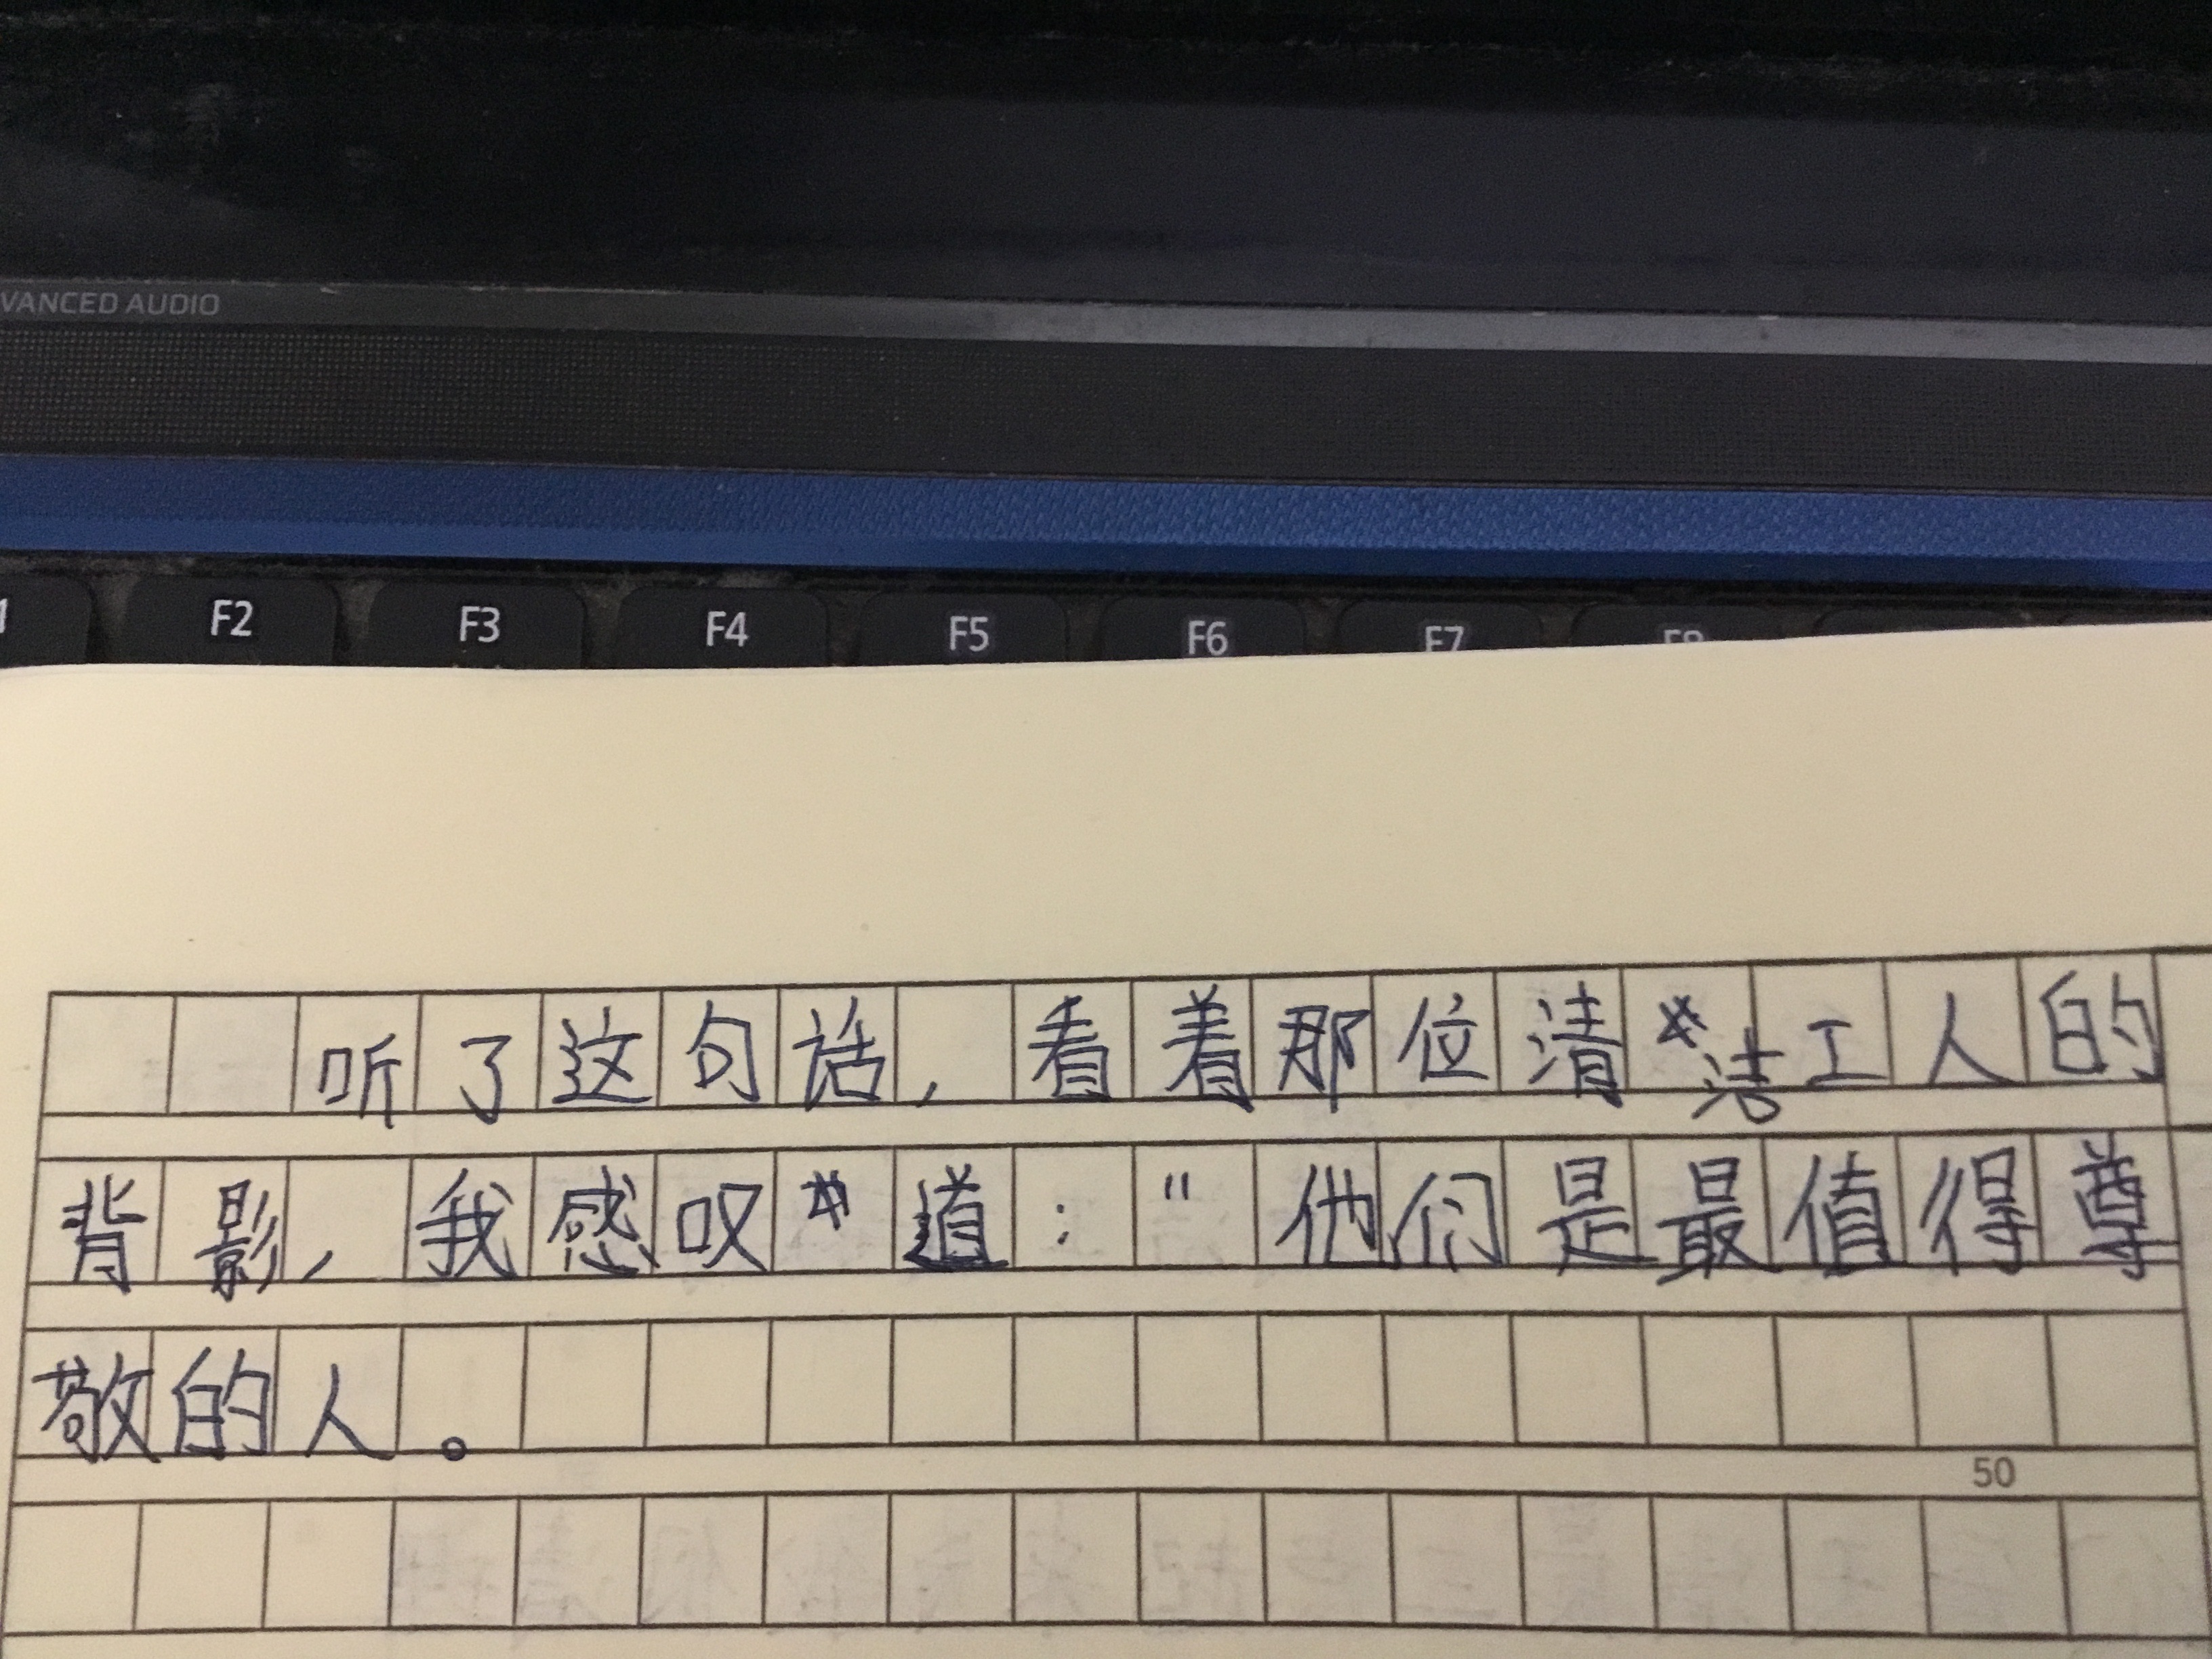 VANCED AUDIO
F2 F3 F4 F5 F6 F7 F8
听了这句话，看着那位清洁工人的
背影，我感叹道："他们是最值得尊
敬的人。
50